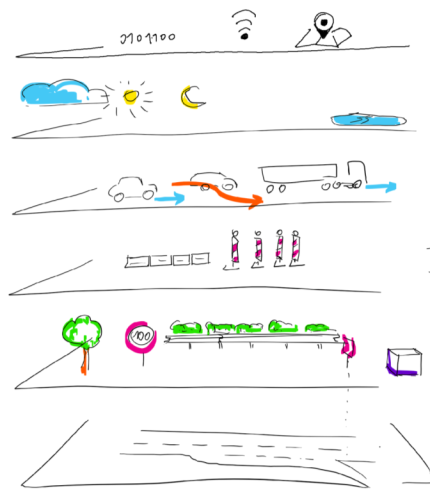 0101100
100